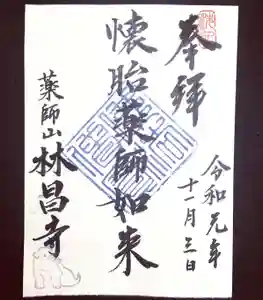 奉拝
令和元年
十一月三日
懐胎薬師如来
薬師山林昌寺